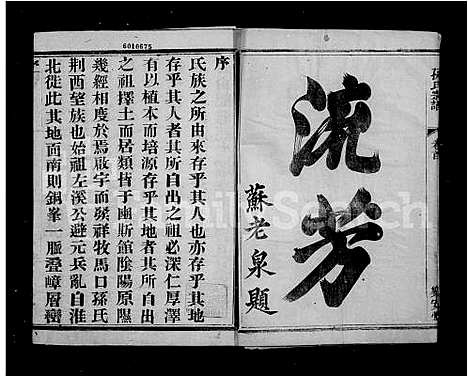 孫氏宗譜
卷首
樂安堂
流芳
蘇老泉題
6010675
序
氏族之所由來存乎其人也亦存乎其地
存乎其人者其所自出之祖必深仁厚澤
有以植本而培源存乎其地者其所自出
之祖擇土而居類皆于豳斯館陰陽原隰
幾經相度於焉啟宇而發祥牧馬口孫氏
荆西望族也始祖左溪公避元兵亂自淮
北徙此其地面南則銅峯一脈疊嶂層巒